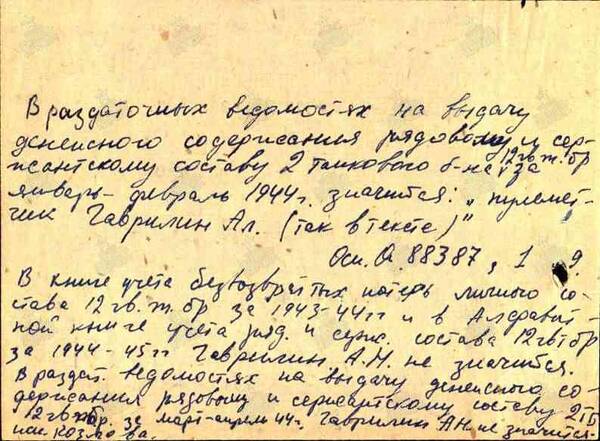 В раздаточных ведомостях на выдачу
денежного содержания рядовому и сер-
жантскому составу 2 танкового б-на 12 гв. т. бр за
январь-февраль 1944 г. значится: „пулемет-
чик Гаврилин Ал. (так в тексте)"
Осн. О. 88387, 1 9.
В книге учета безвозвратных потерь личного со-
става 12 гв. т. бр за 1943-44 гг и в Алфавит-
ной книге учета ряд. и серж. состава 12 гв тбр
за 1944-45 гг Гаврилин А.Н. не значится.
В раздат. ведомостях на выдачу денежного со-
держания рядовому и сержантскому составу 2ТБ
12 гв тбр. за март-апрель 44 г. Гаврилин А.Н. не значится.